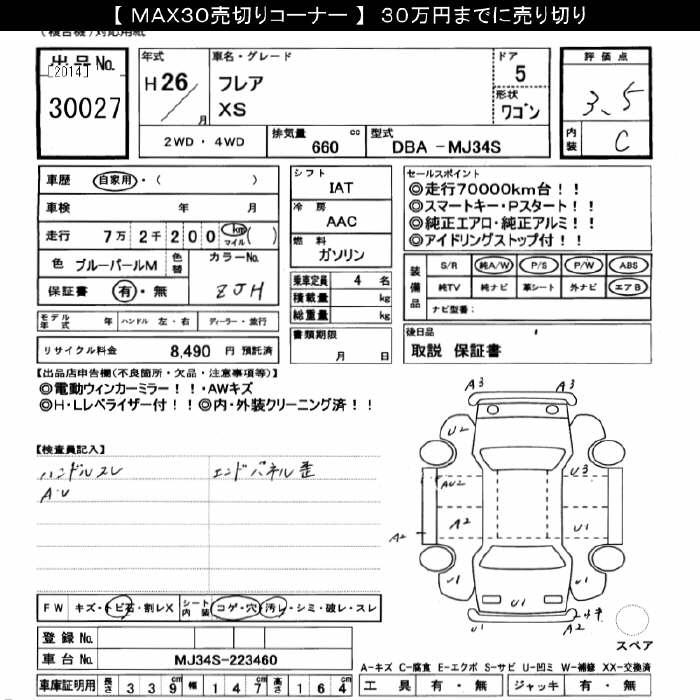 【 MAX30売切りコーナー 】 30万円までに売り切り
(複合機)対応用紙
出品No.
[2014]
30027
年式
H 26 / 月
車名・グレード
フレア
XS
ドア
5
形状
ワゴン
評価点
3、5
内装
C
2WD・4WD
排気量
660 cc
型式
DBA -MJ34S
車歴 自家用・( )
車検 年 月
走行 7万 2千 2 0 0 km マイル ( )
色 ブルーパールM 色替
カラーNo.
ZJH
保証書 有・無
モデル年式 年 ハンドル 左・右 ディーラー・並行
リサイクル料金 8,490 円 預託済
シフト
IAT
冷房
AAC
燃料
ガソリン
乗車定員 4 名
積載量 kg
総重量 kg
書類期限
月 日
セールスポイント
◎走行70000km台!!
◎スマートキー・Pスタート!!
◎純正エアロ・純正アルミ!!
◎アイドリングストップ付!!
装備品
S/R 純A/W P/S P/W ABS
純TV 純ナビ 革シート 外ナビ エアB
ナビ型番:
後日品
取説 保証書
【出品店申告欄(不良箇所・欠品・注意事項等)】
◎電動ウィンカーミラー!!・AWキズ
◎H・Lレベライザー付!!◎内・外装クリーニング済!!
【検査員記入】
ハンドルスレ エンドパネル歪
A・U
FW キズ・トビ石・割レX シート内装 コゲ・穴・汚レ・シミ・破レ・スレ
登録No.
車台No. MJ34S-223460
車庫証明用 長さ 3 3 9 cm 幅 1 4 7 cm 高さ 1 6 4 cm
A3 A3
U2 U1
AU2 U3
A2 A2 U1
U1 U1
U1
スペア
A-キズ C-腐食 E-エクボ S-サビ U-凹ミ W-補修 XX-交換済
工具 有・無 ジャッキ 有・無